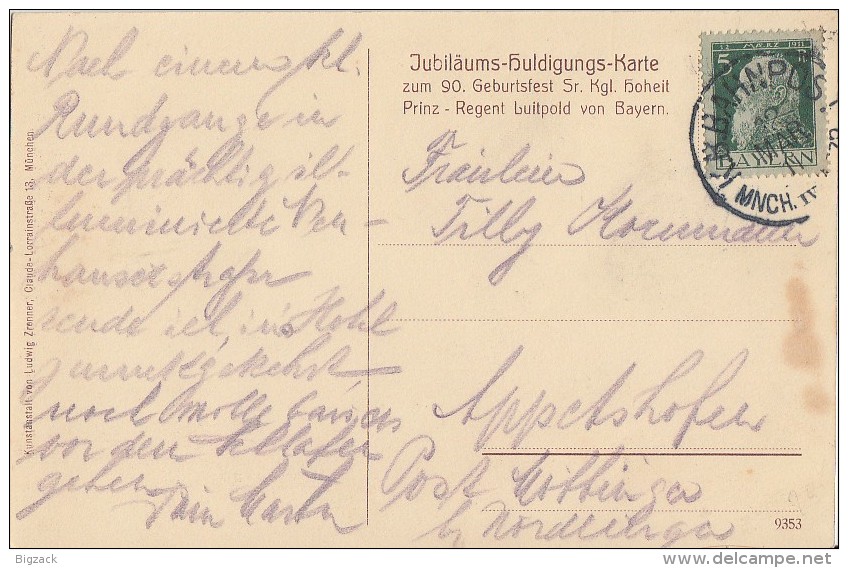 Nach einem kl.
Rundgange in
der prächtig il-
luminierte Neu-
hauserstrasse
sende ich, ins Hotel
zurückgekehrt,
noch
vor dem Schlafen
gehen. Dein
Kunstanstalt von Ludwig Zrenner, Claude-Lorrainstraße 13, München.
Jubiläums-Huldigungs-Karte
zum 90. Geburtsfest Sr. Kgl. Hoheit
Prinz - Regent Luitpold von Bayern.
12. MÆRZ 1911
5
BAYERN
BAHNPOST
12
MAR
11
MNCH. IV
Fräulein
Tilly
Appetshofen
Post Möttingen
b/ Nördlingen
9353
Bigzack
www.delcampe.net